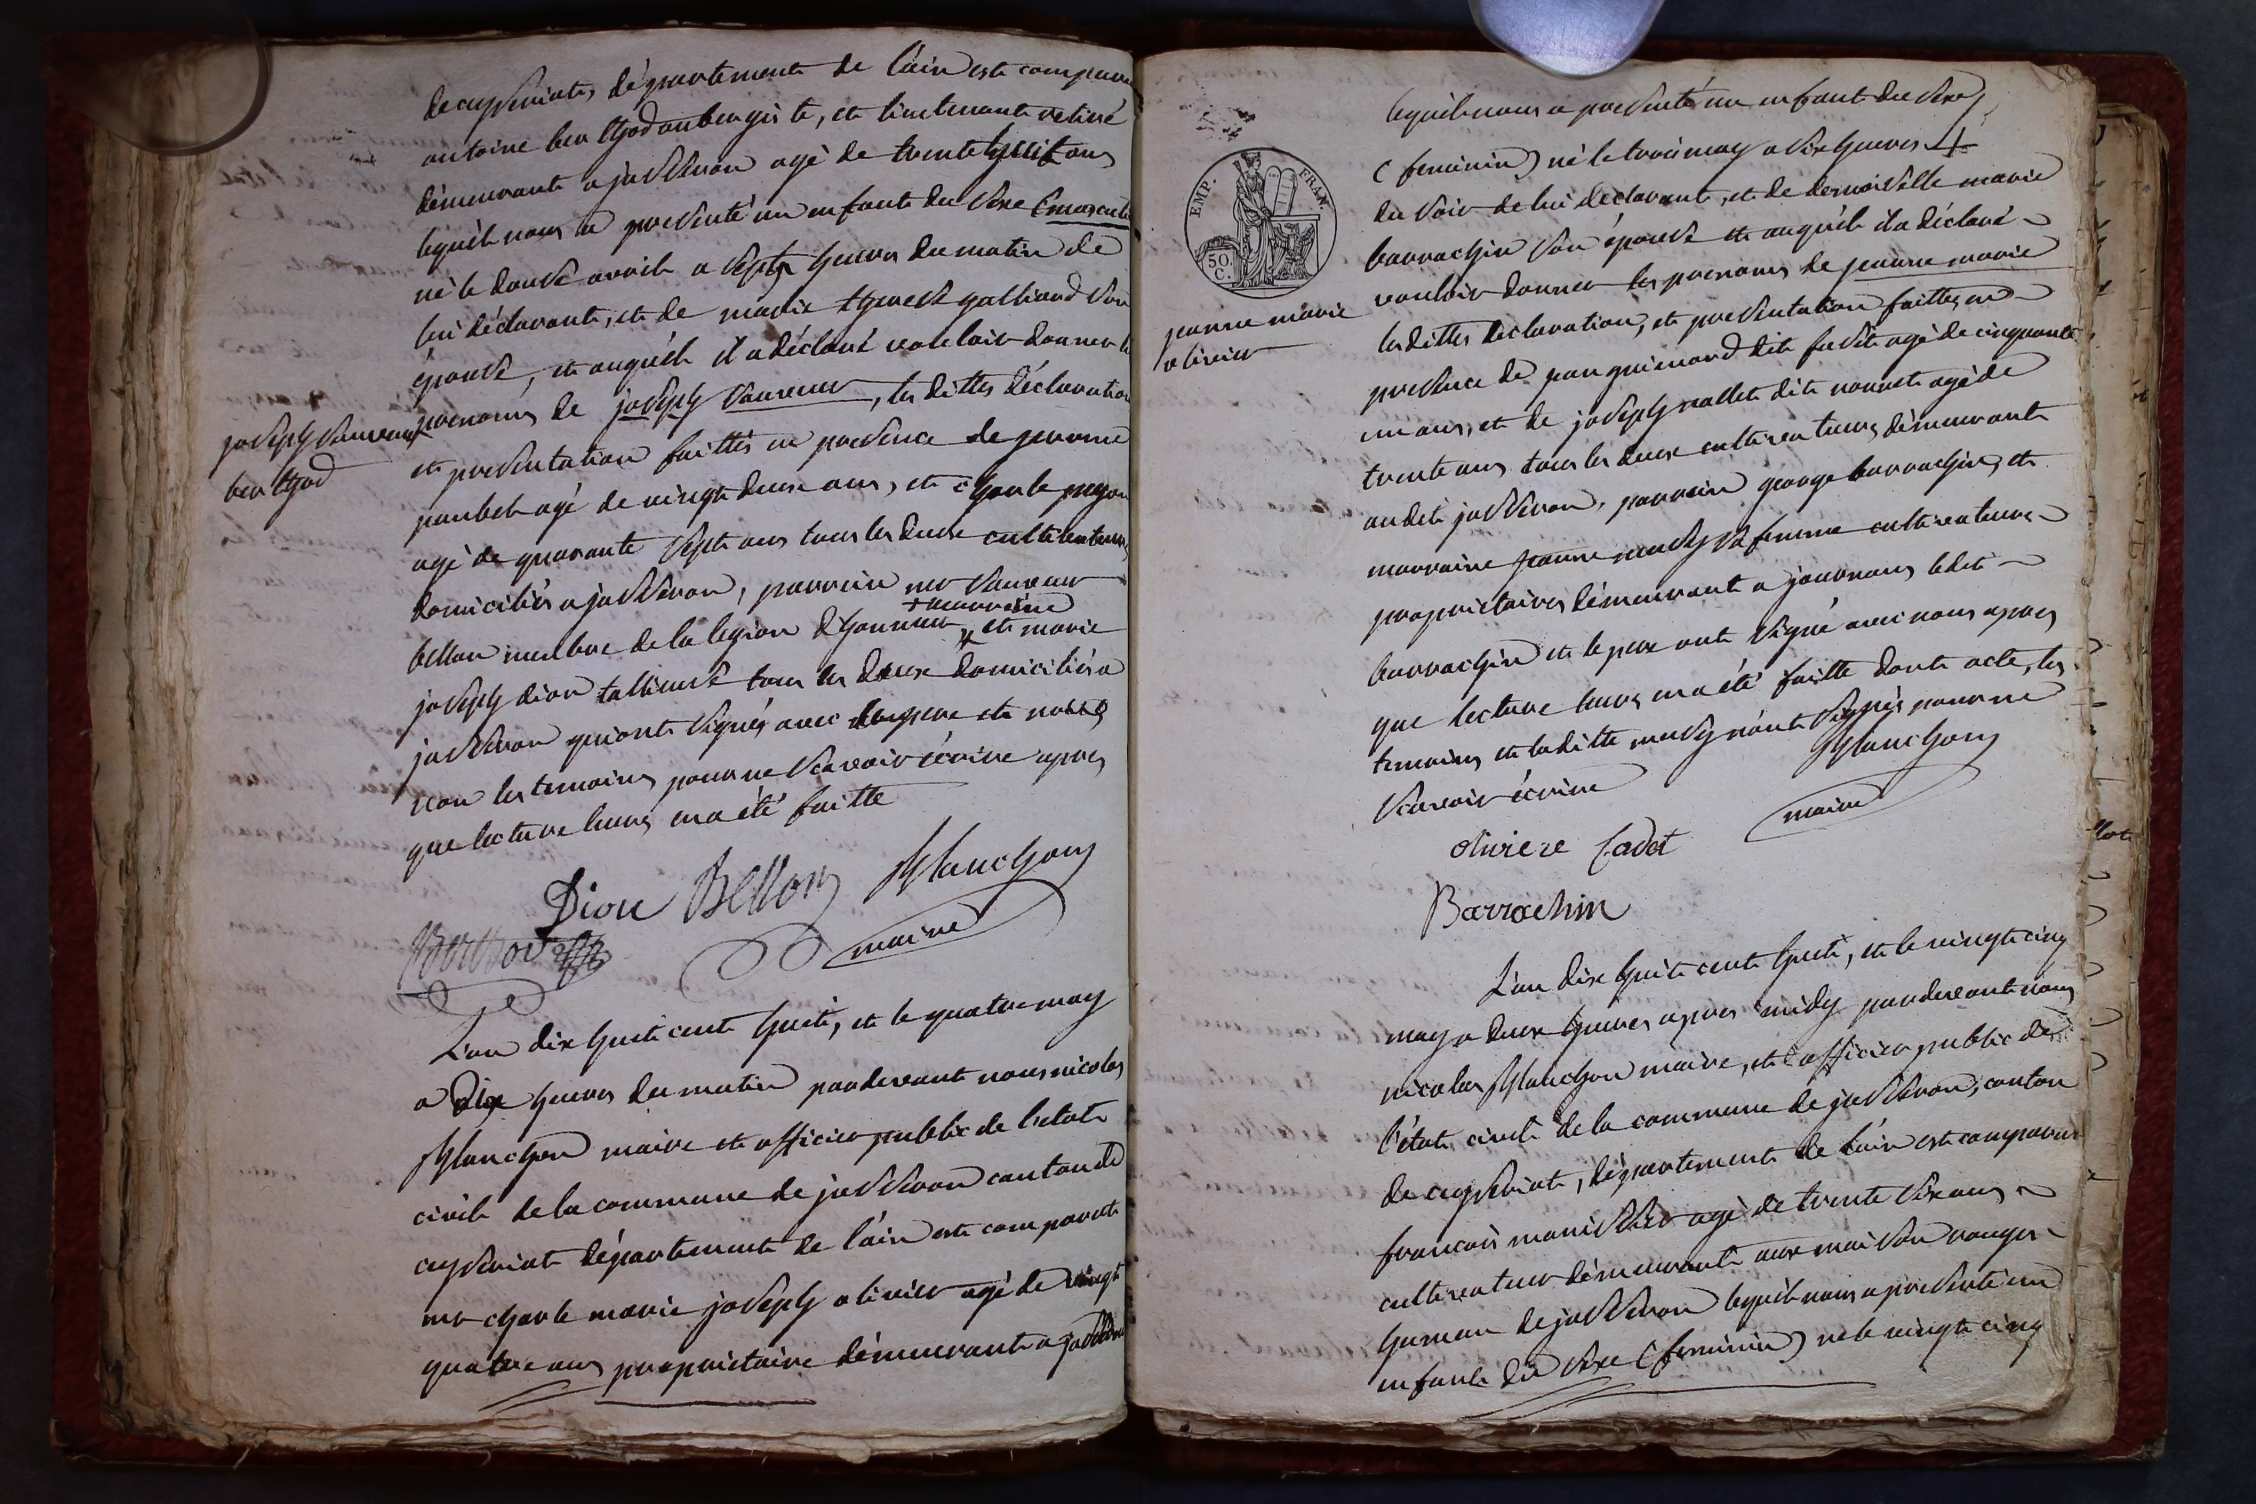 de ceyseriat, département de l'ain est comparu
antoine berthod aubergiste, et lieutenant retiré
démeurant a jasseron agé de trente huit ans
lequel nous a presenté un enfant du sexe (masculin
né le douse avril a sept heures du matin de
lui déclarant, et de marie therese galliard son
épouse, et auquel il a déclaré vouloir donner les
prenoms de joseph sauveur, les dittes déclaration
et presentation faittes en presence de
agé de vingt deux ans, et charle
agé de quarante sept ans tous les deux cultivateurs
domiciliés a jasseron, parrein mr sauveur
+ marreine
bellon membre de la legion d'honneur + et marie
joseph dion tallieuse tous les deux domiciliés a
jasseron qui ont signés avec le pere et nous
non les temoins pour ne scavoir écrire apres
que lecture leurs en a été faitte
joseph sauveur
berthod
Dion Bellon Planchon
maire
Berthod
L'an dix huit cent huit, et le quatre may
a dix heures du matin pardevant nous nicolas
Planchon maire et officier public de l'etat
civil de la commune de jasseron canton de
ceyseriat département de l'ain est comparut
mr charle marie joseph olivier agé de vingt
quatre ans proprietaire démeurant a jasseron
lequel nous a presenté un enfant du sexe
(feminin) né le trois may a six heures +
du soir de lui déclarant, et de demoiselle marie
barrachin son épouse et auquel il a déclaré
vouloir donner les prenoms de jeanne marie
les dittes declaration, et presentation faittes en
presence de dit agé de cinquante
un ans, et de joseph dit agé de
trente ans tous les deux cultivateurs démeurant
au dit jasseron, parrein george barrachin, et
marraine jeanne sa femme cultivateurs
proprietaires démeurant a journans le dit
barrachin et le pere ont signé avec nous apres
que lecture leurs en a été faitte dont acte, les
temoins et la ditte n'ont signés pour ne
scavoir écrire
EMP. FRAN.
50 C.
jeanne marie
olivier
Planchon
maire
oliviere Cadet
Barrachin
L'an dix huit cent huit, et le vingt cinq
may a deux heures apres midy pardevant nous
nicolas Planchon maire, et officier public de
l'état civil de la commune de jasseron, canton
de ceyseriat, département de l'ain est comparu
francois manissier agé de trente six ans
cultivateur démeurant aux maison rouges
hameau de jasseron lequel nous a presenté un
enfant du sexe (feminin) né le vingt cinq